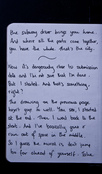 But subway driver brings you home.
And where all the parts come together
you have the whole. That's the city.
Now it's dangerously close to submission
date and I'm not sure that I'm done.
But I started. And that's something,
right?
The drawing on the previous page
might give it well. You see, I started
at the end. Then I went back to the
start. And I'm basically, gave it
run out of space in the middle.
So I guess the moral is don't jump
too far ahead of yourself.